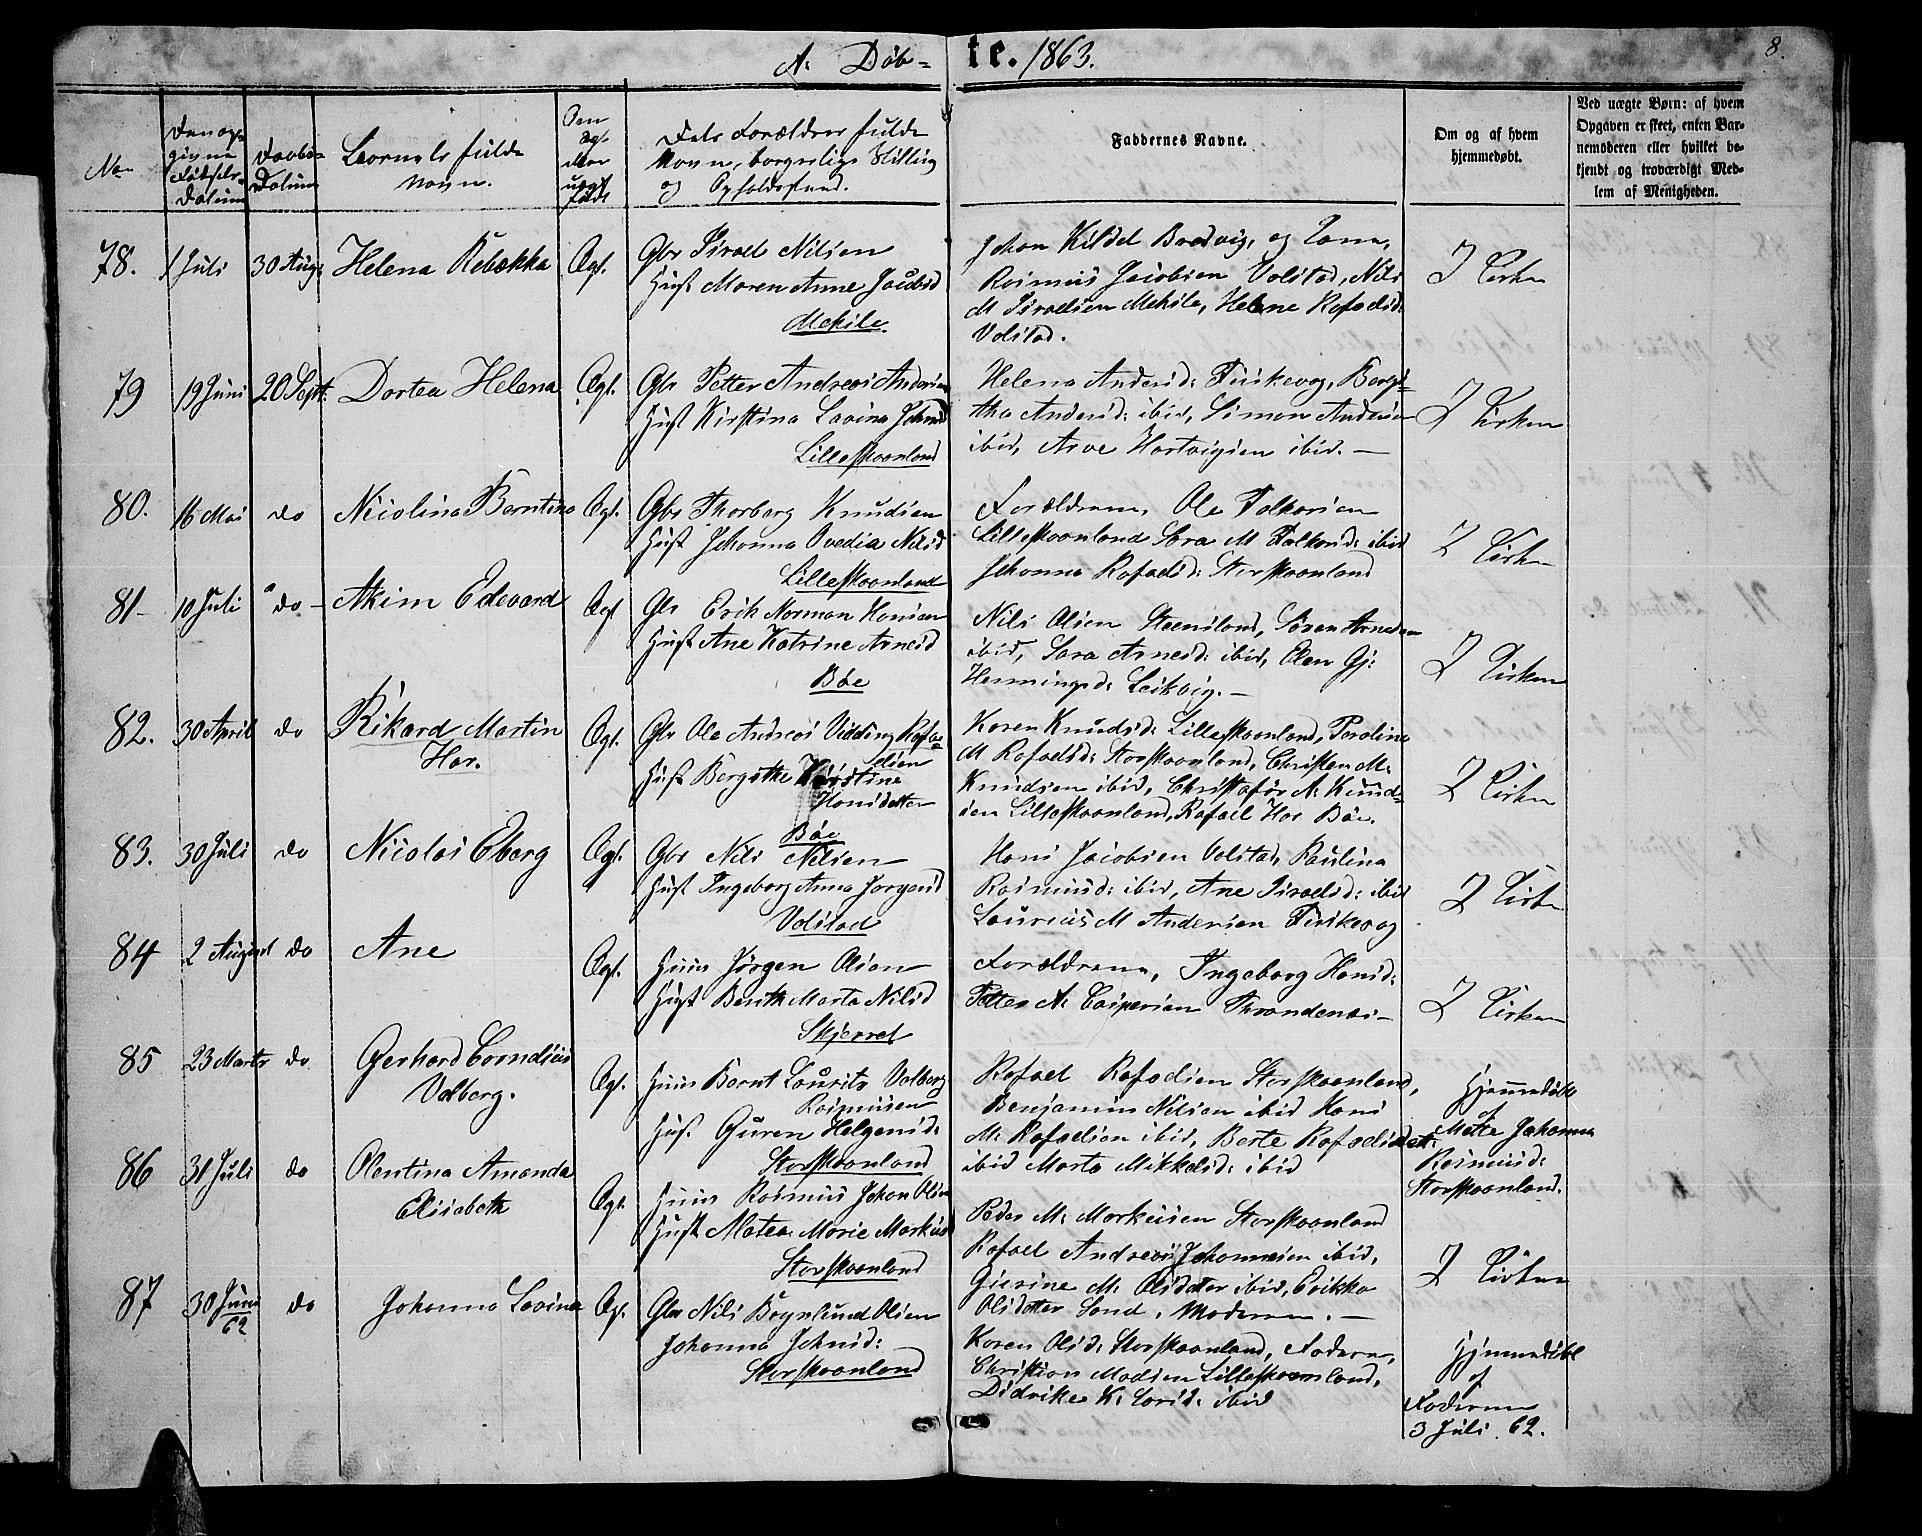 A. Døb-
te. 1863.
8.
No
Den op-
givne
Fødsels-
Datum
Daabs-
Datum
Barnets fulde
Navn.
Om
ægte
eller
uægte
født
Dets Forældres fulde
Navn, borgerlige Stilling
og Opholdssted.
Faddernes Navne.
Om og af hvem
hjemmedøbt.
Ved uægte Børn: af hvem
Opgaven er skeet, enten Bar-
nemoderen eller hvilket be-
kjendt og troværdigt Med-
lem af Menigheden.
78. 1 Juli 30 Aug: Helena Rebækka Ægt.
Gbr Israel Nilsen
Hust Maren Anne Jacobsd
Mekile
Johan Kildal Bredvig, og Kone,
Rasmus Jacobsen Volstad, Nils
M Israelsen Mekile, Helene Rafaelsd:
Volstad.
I Kirken
79 19 Juni 20 Sept: Dortea Helena Ægt.
Gbr Petter Andreas Andersen
Hust Kirstina Lavina Johnsd
Lilleskaanland
Helena Andersd: Fiskevog, Bergi-
tha Andersd: ibid, Simon Andersen
ibid, Arve Hartvigsen ibid. —
I Kirken
80. 16 Mai do Nicolina Berntina Ægt.
Gbr Thorberg Knudsen
Hust Johanna Ovedia Nilsd
Lilleskaanland
Forældrene, Ole Falkorsen
Lilleskaanland Sara M Falkorsd: ibid
Johanna Rafaelsd: Storskaanland
I Kirken
81- 10 Juli do- Akim Edevard Ægt
Gbr Erik Norman Hansen
Hust Ane Katrine Arnesd
Böe
Nils Olsen Steensland, Sören Arnesen
ibid, Sara Arnesd: ibid, Elen Gj:
Hemmingsd: Leikvig. —
I Kirken
82. 30 April do Rikard Martin
Har.
Ægt.
Gbr Ole Andreas Vidding Rafa-
elsen
Hust Bergitte Kirstine
Hansdatter
Böe
Karen Knudsd: Lilleskaanland, Peroline
M Rafaelsd: Storskaanland, Christen M.
Knudsen ibid, Christoför A. Knud-
sen Lilleskaanland, Rafael Har Böe.
I Kirken
83. 30 Juli do Nicolai Eberg Ægt.
Gbr Nils Nilsen
Hust Ingeborg Anna Jörgensd
Volstad
Hans Jacobsen Volstad, Paulina
Rasmusd: ibid, Ane Israelsd: ibid
Laurits M Andersen Fiskevog
I Kirken
84 2 August do Ane Ægt.
Huus Jörgen Olsen
Hust Berith Marta Nilsd
Skjerret
Forældrene, Ingeborg Hansd:
Petter A. Caspersen Throndenæs —
I Kirken
85 23 Marts do Gerhard Cornelius
Valberg.
Ægt.
Huus Bernt Laurits Valberg
Rasmusen
Hust Guren Helgensd:
Storskaanland
Rafael Rafaelsen Storskaanland,
Benjamin Nilsen ibid Hans
M. Rafaelsen ibid, Berte Rafaelsdatt:
ibid Marta Mikkelsd: ibid
Hjemmedöbt
af
Mette Johanna
Rasmusd:
Storskaanland.
86 31 Juli do Olentina Amanda
Elisabeth
Ægt.
Huus Rasmus Johan Olsen
Hust Matea Marie Markusd
Storskaanland
Peder M. Markusen Storskaanland
Rafael Andreas Johannesen ibid,
Gurine M: Olsdatter ibid, Erikka
Olsdatter Sand. Moderen. —
I Kirken
87 30 Juni
62 do Johanna Lavina Ægt.
Gbr Nils Bøynlund Olsen
Johanna Johnsd:
Storskaanland
Karen Olsd: Storskaanland, Faderen,
Christian Madsen Lilleskaanland,
Didrikke K. Larsd: ibid
Hjemmedöbt
af
Faderen
3 Juli. 62.